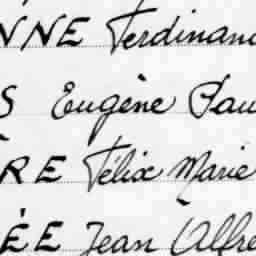 NNE Ferdinand
S Eugène Pau
RE Félix Marie
ÈE Jean Alfre